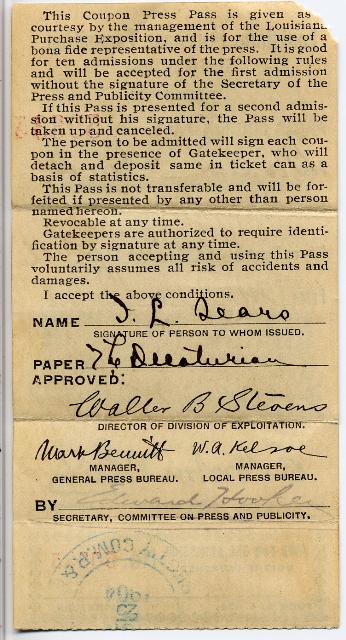 This Coupon Press Pass is given as
courtesy by the management of the Louisiana
Purchase Exposition, and is for the use of a
bona fide representative of the press. It is good
for ten admissions under the following rules
and will be accepted for the first admission
without the signature of the Secretary of the
Press and Publicity Committee.
If this Pass is presented for a second admis-
sion without his signature, the Pass will be
taken up and canceled.
The person to be admitted will sign each cou-
pon in the presence of Gatekeeper, who will
detach and deposit same in ticket can as a
basis of statistics.
This Pass is not transferable and will be for-
feited if presented by any other than person
named hereon.
Revocable at any time.
Gatekeepers are authorized to require identi-
fication by signature at any time.
The person accepting and using this Pass
voluntarily assumes all risk of accidents and
damages.
I accept the above conditions.
NAME L. Sears
SIGNATURE OF PERSON TO WHOM ISSUED.
PAPER The Decaturian
APPROVED:
Walter B Stevens
DIRECTOR OF DIVISION OF EXPLOITATION.
Mark Bennitt W. A. Kelsoe
MANAGER, MANAGER,
GENERAL PRESS BUREAU. LOCAL PRESS BUREAU.
BY Edward Hooker
SECRETARY, COMMITTEE ON PRESS AND PUBLICITY.